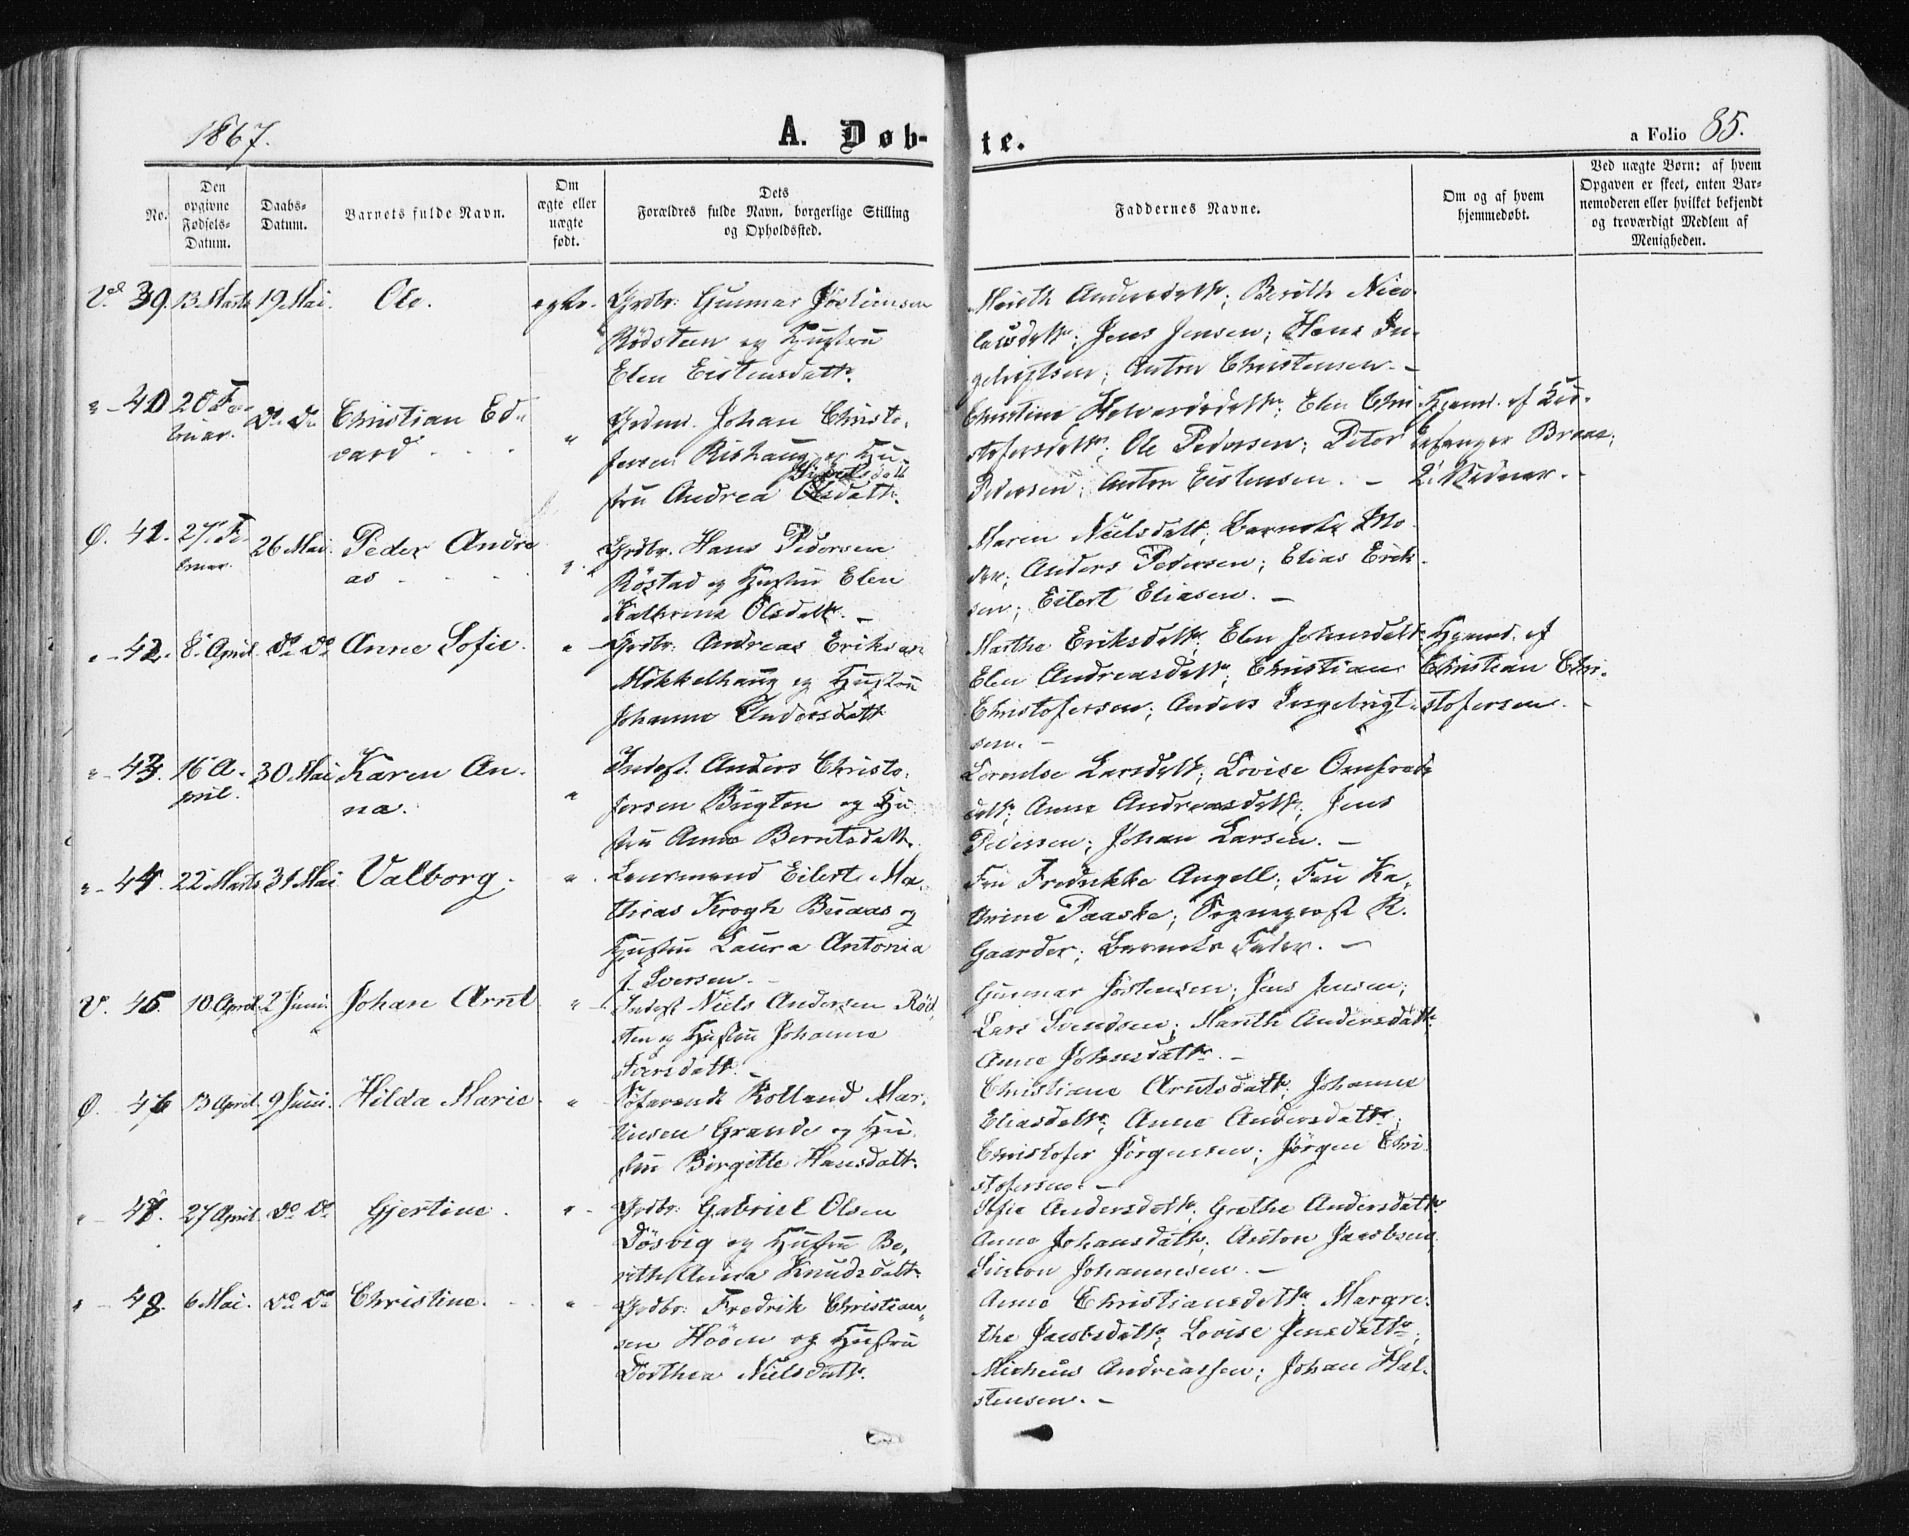 1867.
A. Døb-
te.
a Folio 85.
No.
Den opgivne Fødsels-Datum.
Daabs-Datum.
Barnets fulde Navn.
Om ægte eller uægte født.
Dets Forældres fulde Navn, borgerlige Stilling og Opholdssted.
Faddernes Navne.
Om og af hvem hjemmedøbt.
Ved uægte Børn: af hvem Opgaven er skeet, enten Barnemoderen eller hvilket bekjendt og troværdigt Medlem af Menigheden.
V. 39. 13 Marts 19 Mai. Ole. ægte. Grdbr: Gunnar Jöstensen
Rödsteen og Hustru
Elen Eistensdatt.
Marith Andersdatt; Berith Nico-
laisdatt; Jens Jensen; Hans In-
gebrigtsen; Anton Christensen. -
" - 40 20 Fe-
bruar. do do Christian Ed-
vard " Grdmd. Johan Christo-
fersen Rishaug og Hu-
stru Andrea Olsdatt.
Christine Halvardsdatt; Elen Chri-
stofersdatt; Ole Pedersen; Peter
Pedersen; Anton Eistensen. -
Hjemmd. af
2 Vidner. -
Ø. 41. 27 Fe-
bruar. 26 Mai. Peder Andre-
as " Grdbr. Hans Pedersen
Röstad og Hustru Elen
Kathrine Olsdatt. -
Maren Nielsdatt; Barnets Mo-
der; Anders Pedersen; Elias Erik-
sen; Eilert Eliasen. -
" - 42. 8 April do do Anne Sofie. " Grdbr: Andreas Eriksen
Mikkelhaug og Hustru
Johanne Andersdatt
Marthe Eriksdatt; Elen Johnsdatt;
Elen Andreasdatt; Christian
Christofersen; Anders Ingebrigt-
sen. -
Hjemmd. af
Christian Chri-
stofersen. -
" - 43. 16 A-
pril. 30 Mai Karen An-
na. " Inderst. Anders Christo-
fersen Bugten og Hu-
stru Anne Berntsdatt.
Larsdatt; Lovise
datt; Anne Andreasdatt; Jens
Pedersen; Johan Larsen. -
" - 44. 22 Marts 31 Mai Valborg. " Lensmand Eilert Ma-
thias Krogh Buaas og
Hustru Laura Antonia
f. Iversen. -
Fru Fredrikke Angell; Fru Ka-
thrine Paaske; Sognepræst K.
Gaarder; Barnets Fader. -
V. 45. 10 April. 2 Juni. Johan Arnt " Inderst Niels Andersen Röd-
sten og Hustru Johanne
Iversdatt. -
Gunnar Jöstensen; Jens Jensen;
Lars Svendsen; Marith Andersdatt;
Anne Johnsdatt. -
Ø. 46 13 April. 9 Juni. Hilda Marie " Söfarende Rolland Mar-
tinsen Grande og Hu-
stru Birgitte Hansdatt.
Christiane Arntsdatt; Johanne
Eliasdatt; Anne Andersdatt;
Christofer Jörgensen; Jörgen Chri-
stofersen. -
" - 47. 27 April. do do Gjertine. " Grdbr: Gabriel Olsen
Dösvig og Hustru Be-
rith Anna Knudsdatt.
Sofie Andersdatt; Grethe Andersdatt;
Anne Johansdatt; Anton Jacobsen;
Simon Johannesen. -
" - 48. 6 Mai. do do Christine. " Grdbr: Fredrik Christian-
sen Hööen og Hustru
Dorthea Nielsdatt.
Anne Christiansdatt; Margre-
the Jacobsdatt; Lovise Jensdatt;
Andreassen; Johan Hal-
stensen. -